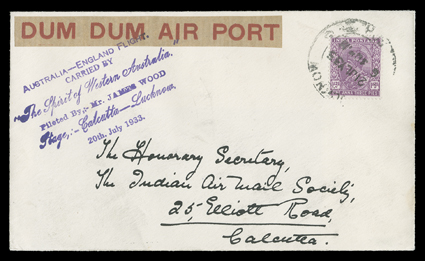 DUM DUM AIR PORT
AUSTRALIA—ENGLAND FLIGHT.
CARRIED BY
"The Spirit of Western Australia."
Piloted By,- Mr. JAMES WOOD
Stage,:- Calcutta—Lucknow.
20th. July 1933.
The Honorary Secretary,
The Indian Air Mail Society,
25, Elliott Road,
Calcutta.